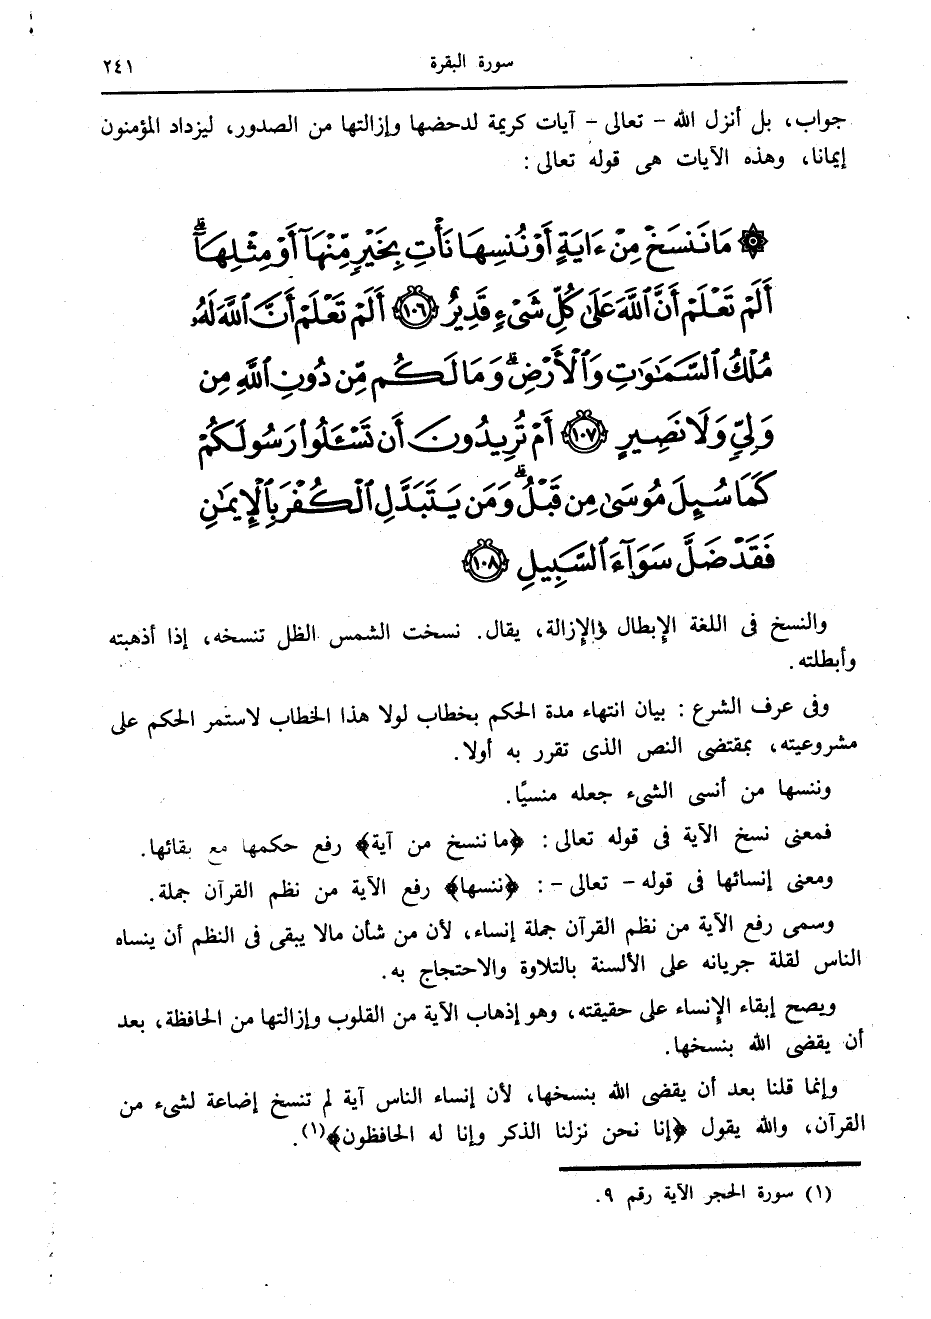 سورة البقرة ٢٤١
جواب، بل أنزل الله - تعالى - آيات كريمة لدحضها وإزالتها من الصدور، ليزداد المؤمنون
إيمانا، وهذه الآيات هى قوله تعالى :
۞ مَا نَنسَخْ مِنْ ءَايَةٍ أَوْ نُنسِهَا نَأْتِ بِخَيْرٍ مِّنْهَآ أَوْ مِثْلِهَآ ۗ
أَلَمْ تَعْلَمْ أَنَّ ٱللَّهَ عَلَىٰ كُلِّ شَىْءٍ قَدِيرٌ ١٠٦ أَلَمْ تَعْلَمْ أَنَّ ٱللَّهَ لَهُۥ
مُلْكُ ٱلسَّمَـٰوَٰتِ وَٱلْأَرْضِ ۗ وَمَا لَكُم مِّن دُونِ ٱللَّهِ مِن
وَلِىٍّ وَلَا نَصِيرٍ ١٠٧ أَمْ تُرِيدُونَ أَن تَسْـَٔلُوا۟ رَسُولَكُمْ
كَمَا سُئِلَ مُوسَىٰ مِن قَبْلُ ۗ وَمَن يَتَبَدَّلِ ٱلْكُفْرَ بِٱلْإِيمَـٰنِ
فَقَدْ ضَلَّ سَوَآءَ ٱلسَّبِيلِ ١٠٨
والنسخ فى اللغة الإبطال والإزالة، يقال. نسخت الشمس الظل تنسخه، إذا أذهبته
وأبطلته.
وفى عرف الشرع : بيان انتهاء مدة الحكم بخطاب لولا هذا الخطاب لاستمر الحكم على
مشروعيته، بمقتضى النص الذى تقرر به أولا.
وننسها من أنسى الشىء جعله منسيًا.
فمعنى نسخ الآية فى قوله تعالى : ﴿ما ننسخ من آية﴾ رفع حكمها مع بقائها.
ومعنى إنسائها فى قوله - تعالى - : ﴿ننسها﴾ رفع الآية من نظم القرآن جملة.
وسمى رفع الآية من نظم القرآن جملة إنساء، لأن من شأن مالا يبقى فى النظم أن ينساه
الناس لقلة جريانه على الألسنة بالتلاوة والاحتجاج به.
ويصح إبقاء الإنساء على حقيقته، وهو إذهاب الآية من القلوب وإزالتها من الحافظة، بعد
أن يقضى الله بنسخها.
وإنما قلنا بعد أن يقضى الله بنسخها، لأن إنساء الناس آية لم تنسخ إضاعة لشىء من
القرآن، والله يقول ﴿إنا نحن نزلنا الذكر وإنا له الحافظون﴾(١).
(١) سورة الحجر الآية رقم ٩.